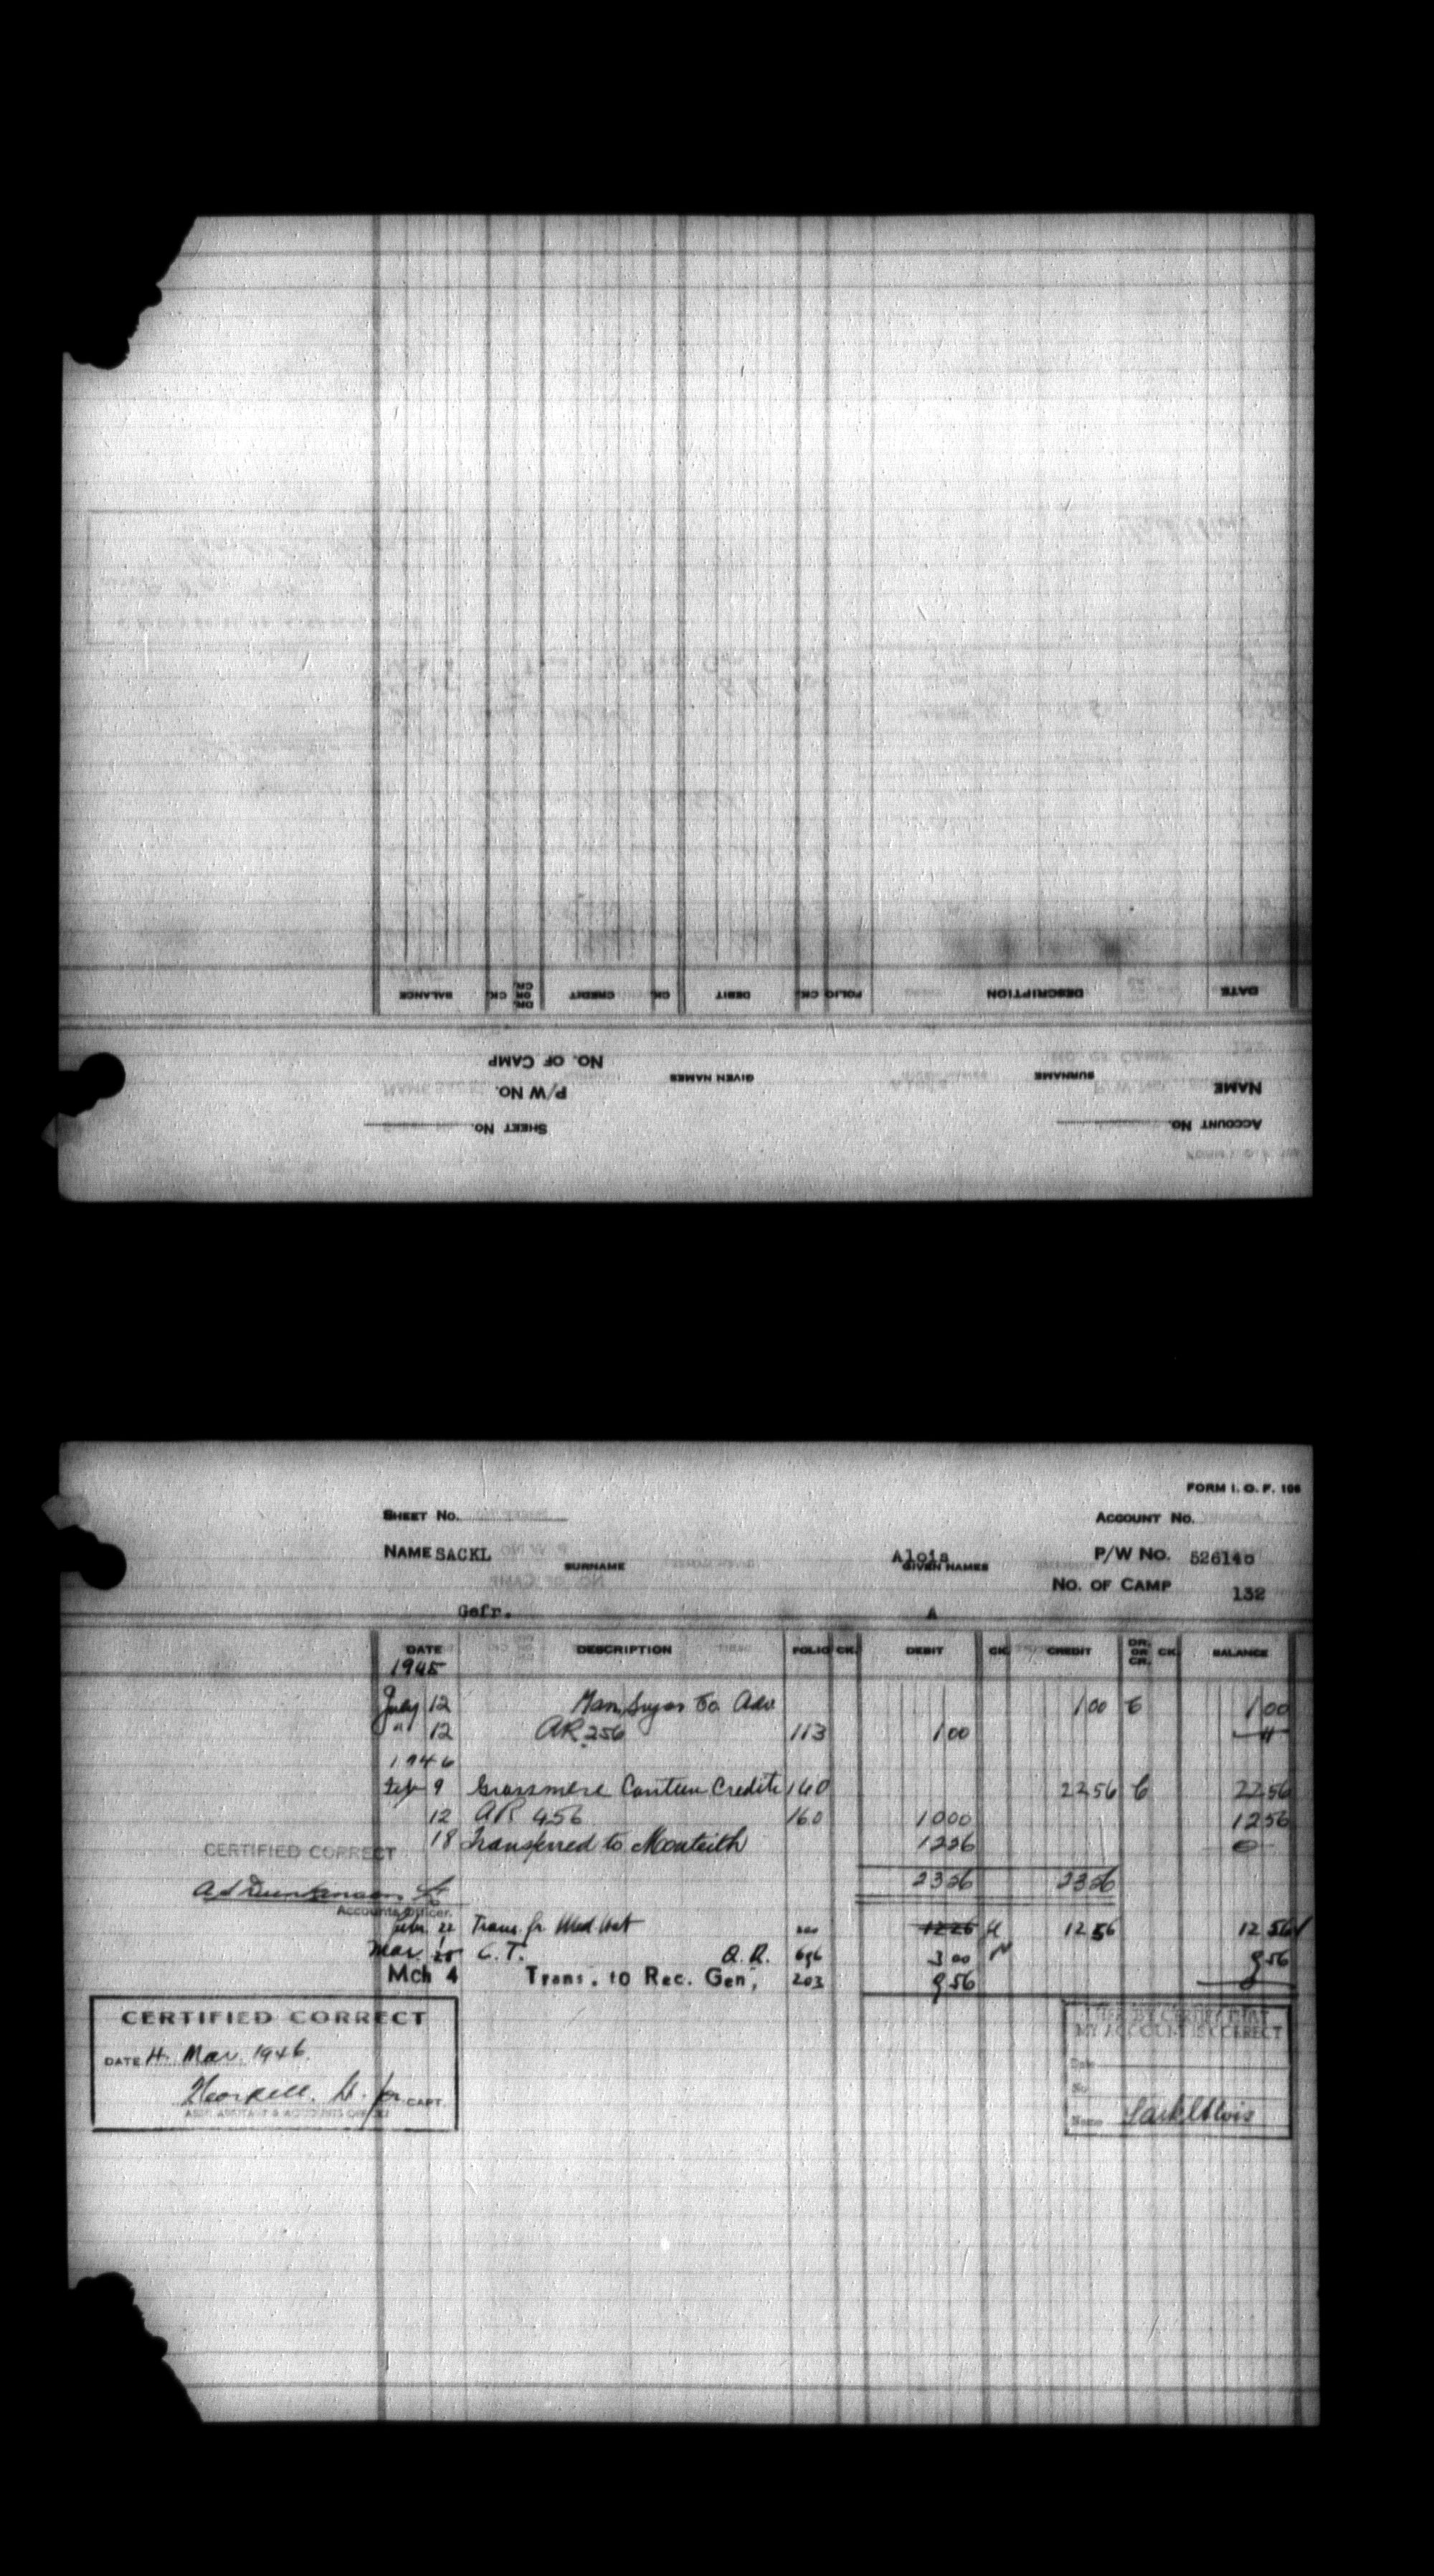 BALANCE CK. DR. OR CR. CREDIT CK. DEBIT CK. FOLIO DESCRIPTION DATE
NO. OF CAMP
P/W NO. GIVEN NAMES SURNAME NAME
SHEET NO. ACCOUNT NO.
FORM I. O. F. 106
SHEET NO. ACCOUNT NO.
NAME SACKL Alois P/W NO. 526140
SURNAME GIVEN NAMES
NO. OF CAMP 132
Gefr. A
DATE DESCRIPTION FOLIO CK. DEBIT CK. CREDIT DR. OR CR. CK. BALANCE
1945
July 12 Man. Sugar Co. Adv 1 00 C 1 00
" 12 AR 256 113 1 00
1946
Feb 9 Grassmere Canteen Credits 160 22 56 C 22 56
12 AR 456 160 10 00 12 56
18 Transferred to Monteith 12 56 0
CERTIFIED CORRECT
23 56 23 56
Accounts Officer.
22 Trans. fr. Med Hat 12 56 12 56 12 56
Mar. C. T. 696 3 00 9 56
Mch 4 Trans. to Rec. Gen. 203 9 56
CERTIFIED CORRECT
DATE 4 Mar. 1946.
CAPT.
MY ACCOUNT IS CORRECT
Date
No
Name Sackl Alois